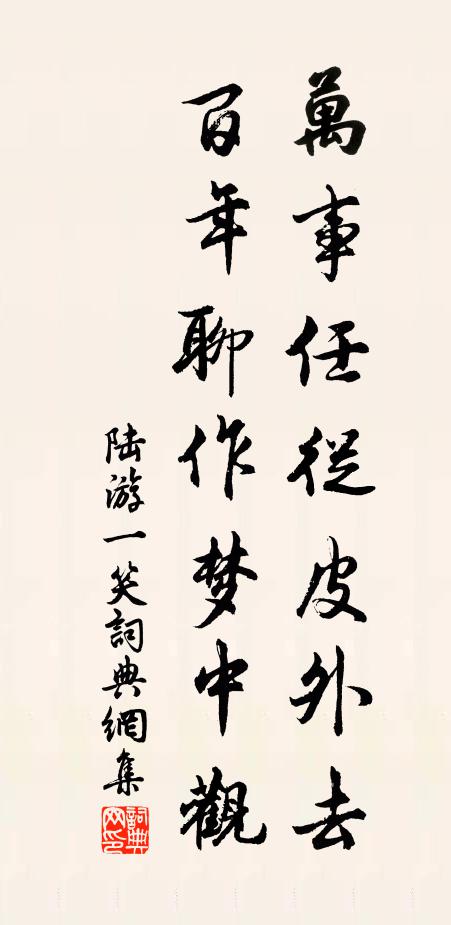 萬事任從皮外去
百年聊作梦中觀
陆游一笑詞典網集
詞典网印